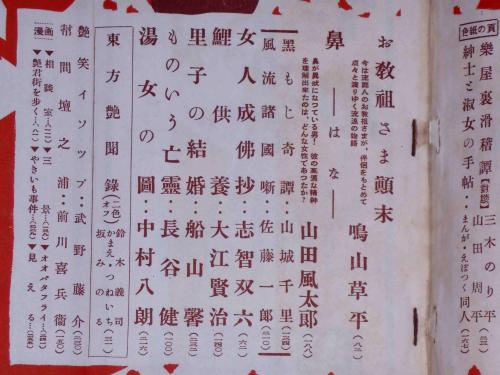 色紙の頁
樂屋裏滑稽譚【對談】三木のり平
山田周平
紳士と淑女の手帖‥まんが・えぽつく同人(一六七)
お敎祖さま顛末
今は流罰人のお敎祖さまが、伴侶をもとめて
点々と渡りゆく流浪の物語
鳴山草平
鼻
―はな―
鼻が異狀になつている男!彼の高潔な精神
を理解出來たのは、どんな女性であつたか?
山田風太郎(一八八)
黑もじ奇譚‥山城千里
風流諸國噺‥佐藤一郎
女人成佛抄‥志智双六
鯉供養‥大江賢治
里子の結婚‥船山馨
ものいう亡靈‥長谷健
湯女の圖‥中村八朗
東方艷聞錄(二色オフ)
鈴木義司
かまえ・つねいち
坂みのる
艷笑イソップ‥武野藤介
幇間壇之浦‥前川喜兵衞
漫画
▼相談室
▼三景
▼オオバタフライ
▼艷君街を歩く
▼やきいも事件
▼見える